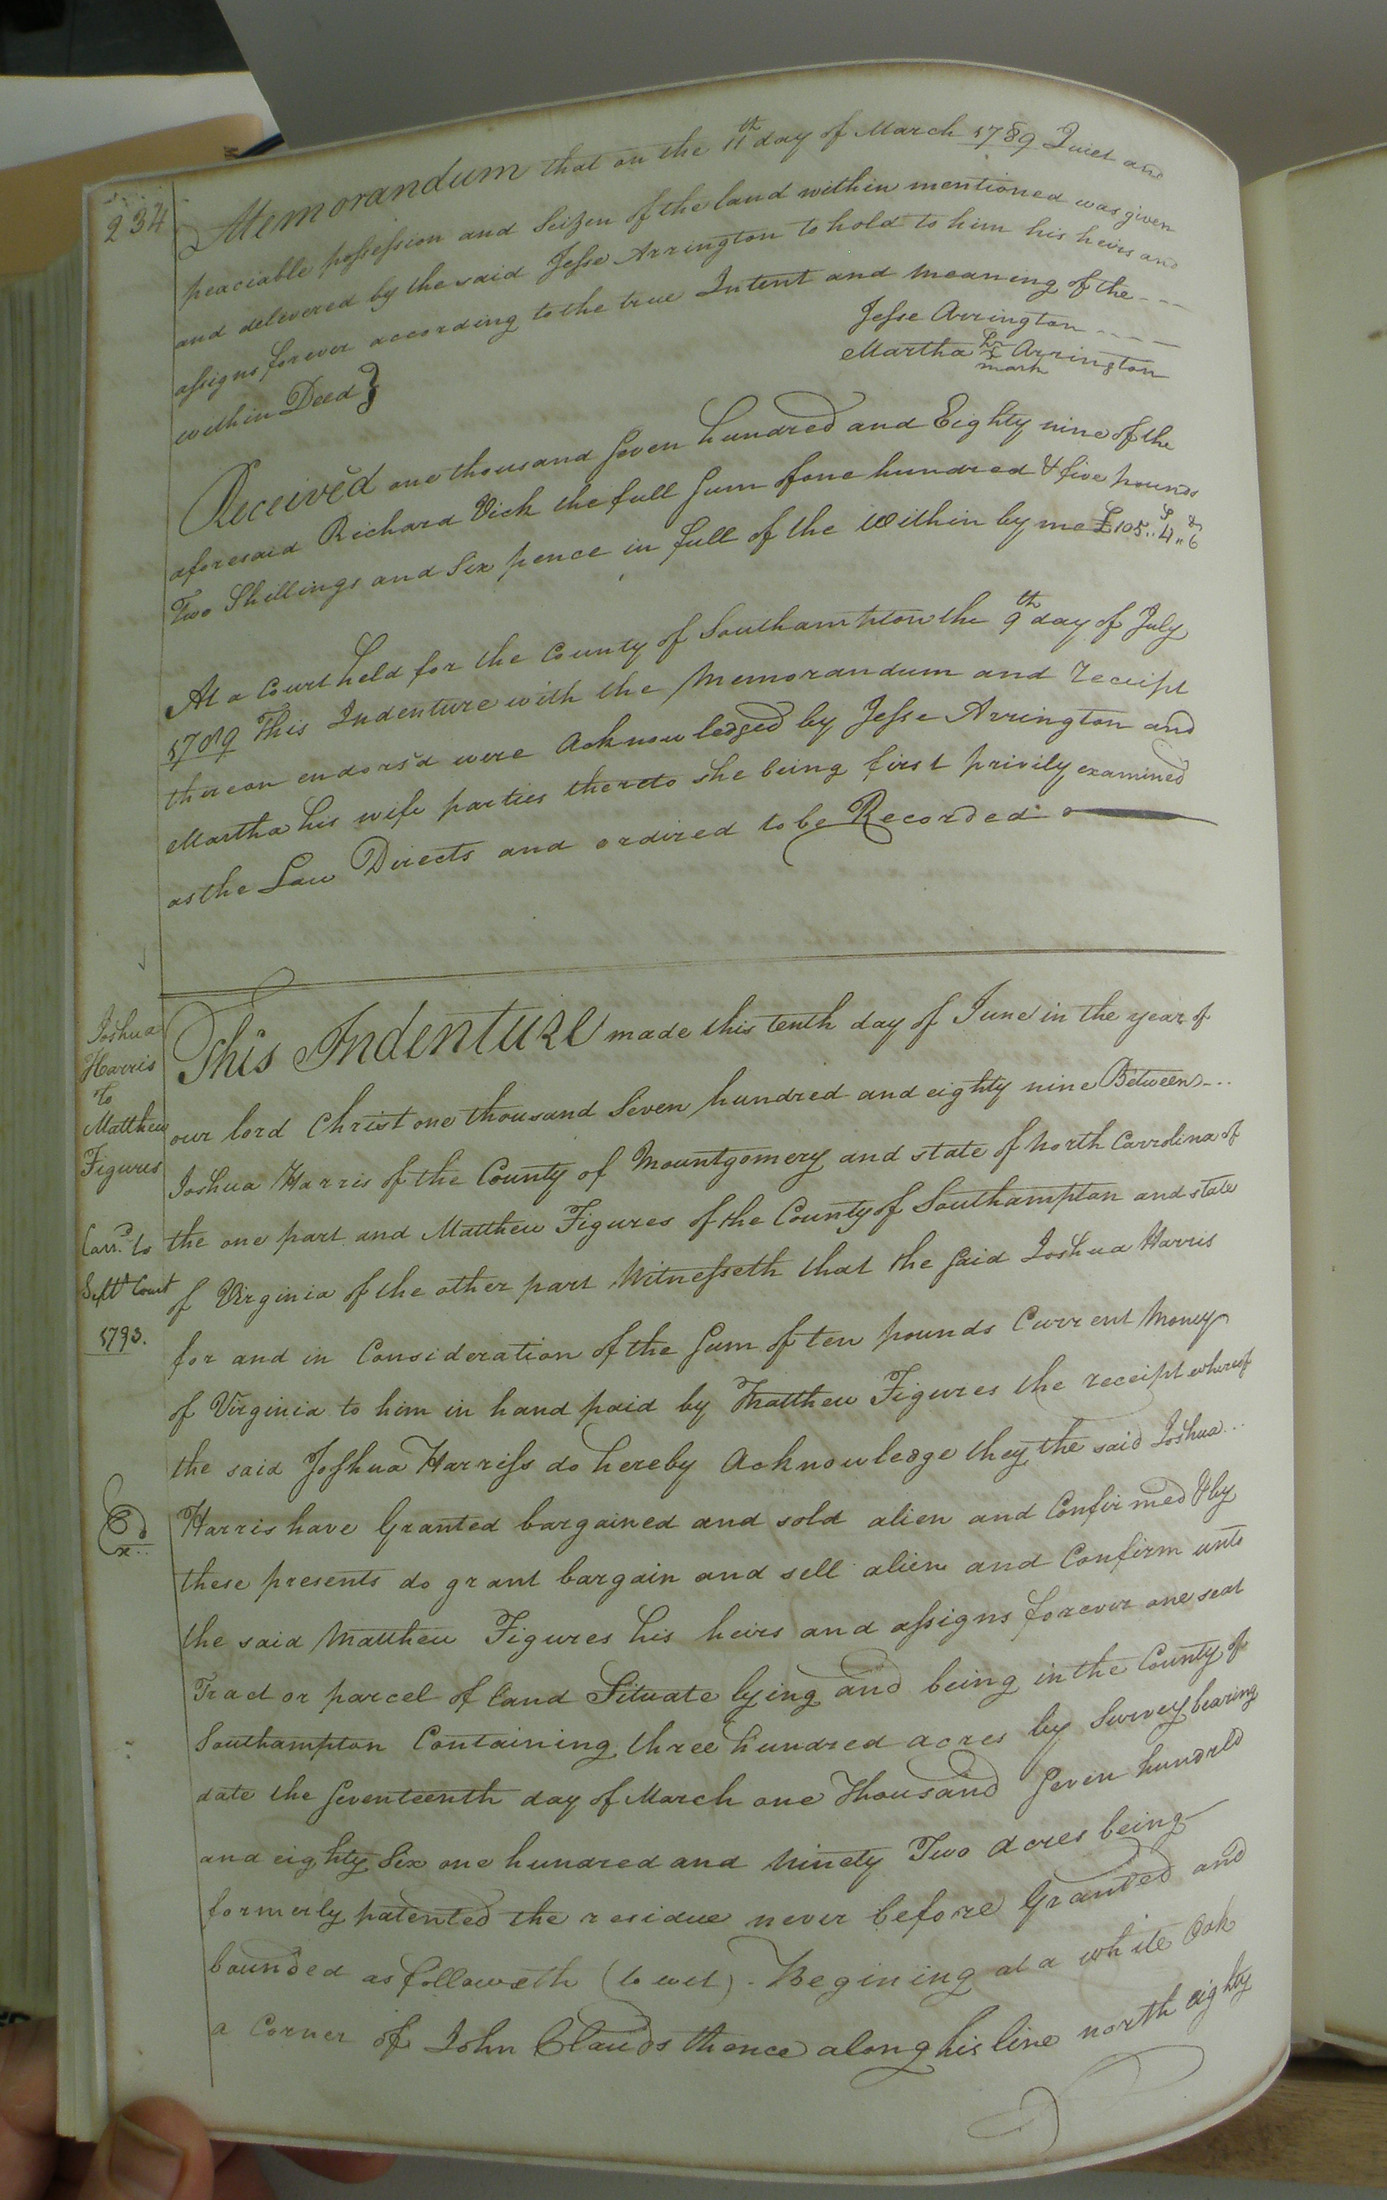 234
Memorandum that on the 11th day of March 1789 Quiet and
peaciable possession and Seizen of the land within mentioned was given
and delevered by the said Jesse Arrington to hold to him his heirs and
assigns forever according to the true Intent and meaning of the
within Deed}
Jesse Arrington
Martha her x mark Arrington
Received one thousand Seven hundred and Eighty nine of the
aforesaid Richard Vick the full Sum of one hundred & five pounds
Two Shillings and Six pence in full of the within by me £105..4..6
At a Court held for the County of Southampton the 9th day of July
1789 This Indenture with the Memorandum and receipt
thereon endors'd were Acknowledged by Jesse Arrington and
Martha his wife parties thereto she being first privily examined
as the Law Directs and ordired to be Recorded
Joshua
Harris
To
Matthew
Figures
Carrd. to
Septr Court
1793.
Exd
This Indenture made this tenth day of June in the year of
our lord Christ one thousand Seven hundred and eighty nine Between
Joshua Harris of the County of Mountgomery and state of North Carrolina of
the one part and Matthew Figures of the County of Southampton and state
of Virginia of the other part Witnesseth that the Said Joshua Harris
for and in Consideration of the Sum of ten pounds Current Money
of Virginia to him in hand paid by Matthew Figures the receipt whereof
the said Joshua Harriss do hereby Acknowledge they the said Joshua
Harris have Granted bargained and sold alien and Confirmed & by
these presents do grant bargain and sell alien and Confirm unto
the said Matthew Figures his heirs and assigns forever one seat
Tract or parcel of land Situate lying and being in the County of
Southampton Containing three hundred acres by Survey bearing
date the Seventeenth day of March one Thousand Seven hundred
and eighty Six one hundred and Ninety Two acres being
formerly patented the residue never before Granted and
bounded as followeth (to wit). Begining at a white Oak
a Corner of John Clauds thence along his line north eighty